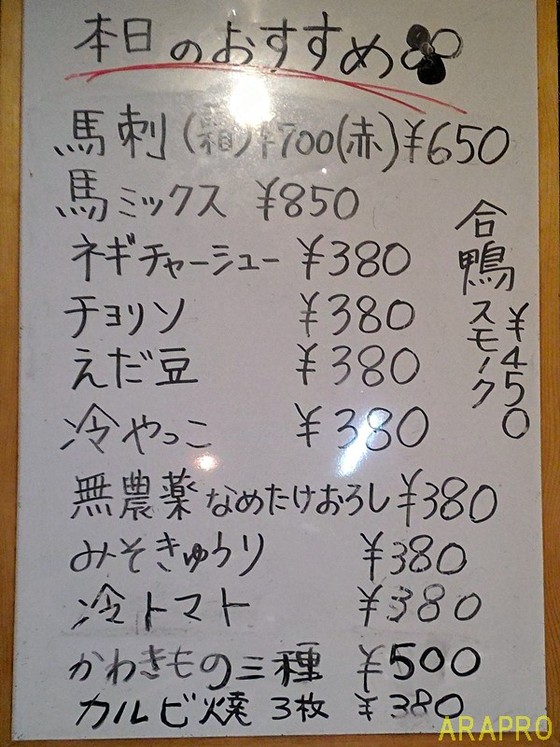 本日のおすすめ
馬刺(霜)¥700(赤)¥650
馬ミックス ¥850
ネギチャーシュー ¥380
チョリソ ¥380
えだ豆 ¥380
冷やっこ ¥380
無農薬なめたけおろし¥380
みそきゅうり ¥380
冷トマト ¥380
かわきもの三種 ¥500
カルビ焼 3枚 ¥380
合鴨スモーク
¥450
ARAPRO